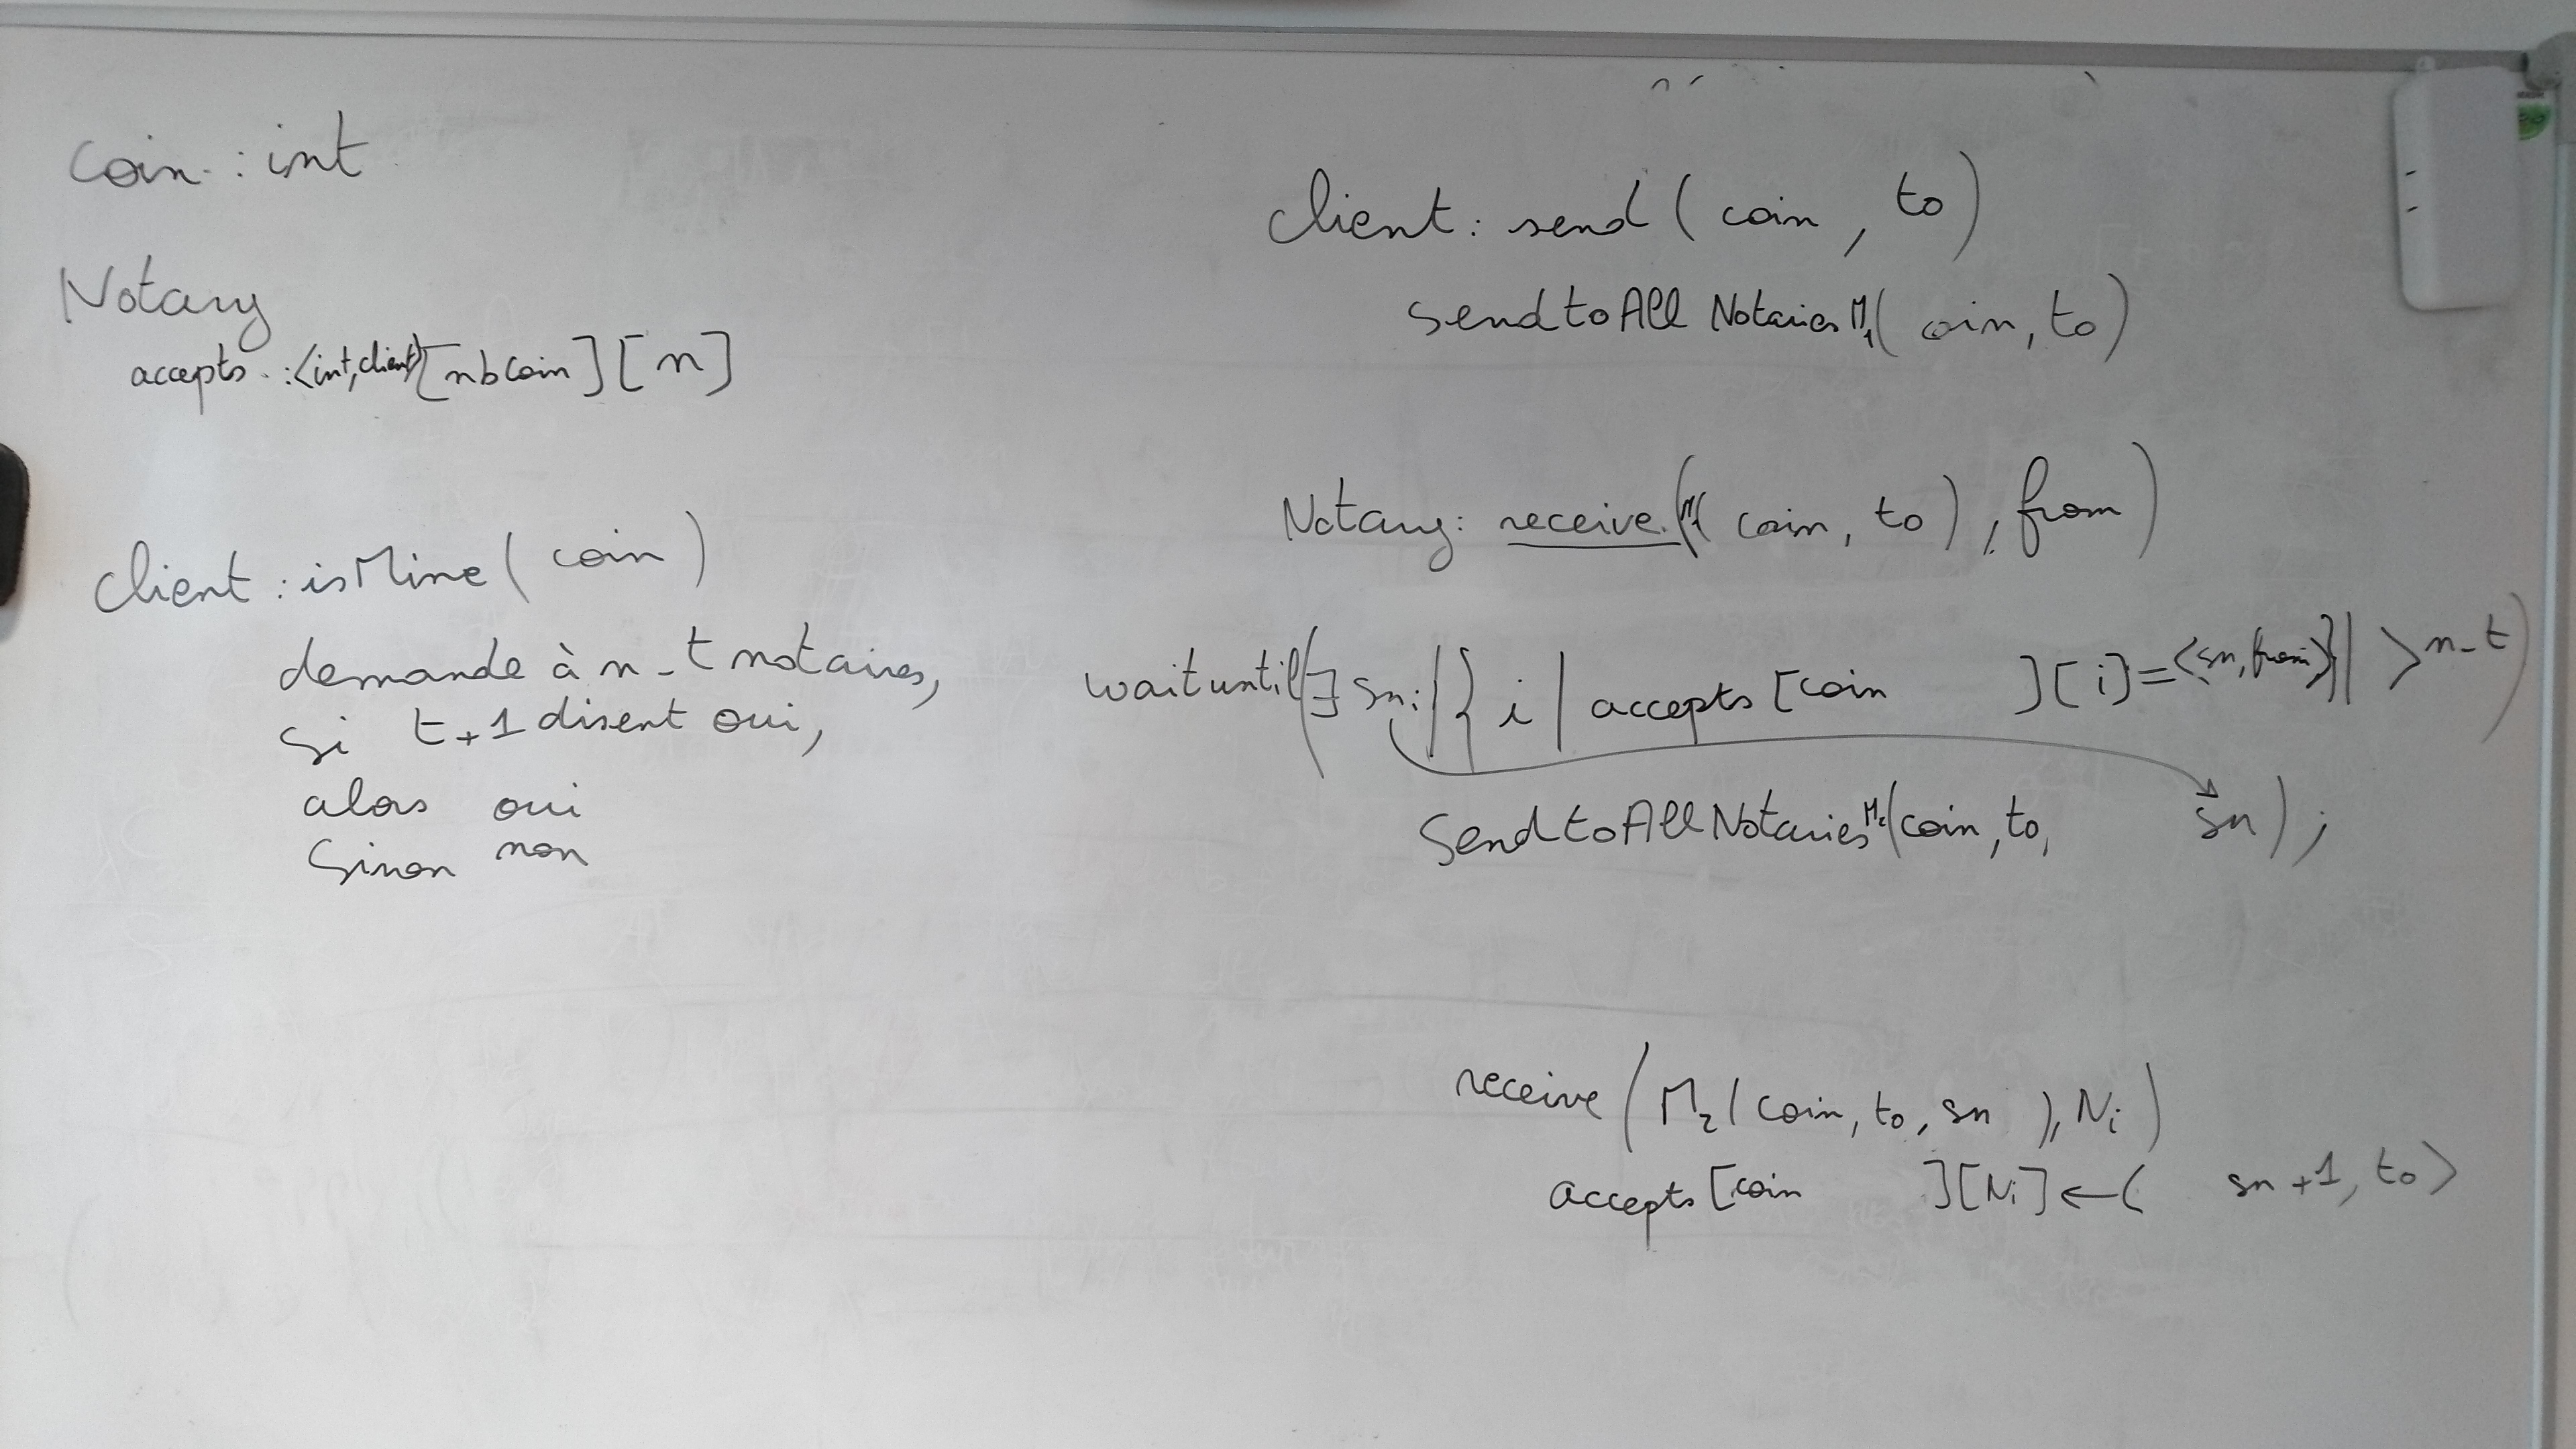 Coin : int
Notary
accepts : <int, client>[nbCoin][n]
Client : isMine ( coin )
demande à n-t notaires,
si t+1 disent oui,
alors oui
Sinon non
Client : send ( coin , to )
SendtoAll Notaries M1( coin, to )
Notary : receive (M1( coin, to ) , from )
wait until(∃ sn : |{ i | accepts [coin ][i] = <sn, from>}| > n-t)
SendtoAllNotaries M2(coin, to, sn ) ;
receive ( M2( coin, to, sn ), Ni )
accepts [coin ][Ni] ← ( sn+1, to >